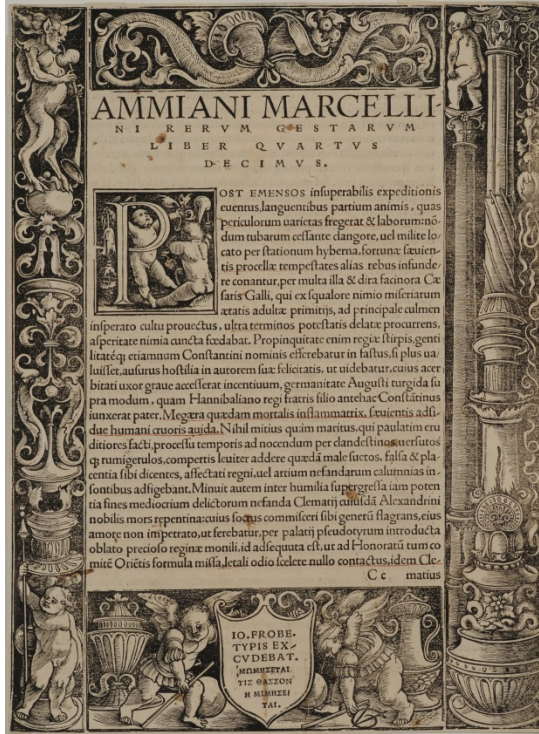 AMMIANI MARCELLI-
NI RERVM GESTARVM
LIBER QVARTVS
DECIMVS.
POST EMENSOS insuperabilis expeditionis
euentus, languentibus partium animis, quas
periculorum uarietas fregerat & laborum: nō
dum tubarum cessante clangore, uel milite lo
cato per stationum hyberna, fortunæ sæuien-
tis procellæ tempestates alias rebus infunde-
re conantur, per multa illa & dira facinora Cæ
saris Galli, qui ex squalore nimio miseriarum
ætatis adultæ primitijs, ad principale culmen
insperato cultu prouectus, ultra terminos potestatis delatæ procurrens,
asperitate nimia cuncta fœdabat. Propinquitate enim regiæ stirpis, genti
litatéq; etiamnum Constantini nominis efferebatur in fastus, si plus ua-
luisset, ausurus hostilia in autorem suæ felicitatis, ut uidebatur, cuius acer
bitati uxor graue accesserat incentiuum, germanitate Augusti turgida su
pra modum, quam Hannibaliano regi fratris filio antehac Constātinus
iunxerat pater, Megæra quædam mortalis inflammatrix, sæuientis adsi-
due humani cruoris auida. Nihil mitius quàm maritus, qui paulatim eru
ditiores facti, processu temporis ad nocendum per clandestinos uersutos
q; rumigerulos, compertis leuiter addere quædā male suetos, falsa & pla-
centia sibi dicentes, affectati regni, uel artium nefandarum calumnias in-
sontibus adfigebant. Minuit autem inter humilia supergressa iam poten
tia fines mediocrium delictorum nefanda Clematij cuiusdā Alexandrini
nobilis mors repentina: cuius socrus commisceri sibi generū flagrans, eius
amore non impetrato, ut ferebatur, per palatij pseudotyrum introducta
oblato precioso reginæ monili, id adsequuta est, ut ad Honoratū tum co
mitē Oriētis formula missa, letali odio scelete nullo contactus, idem Cle-
C c matius
IO. FROBE.
TYPIS EX-
CVDEBAT.
ΜΩΜΗΣΕΤΑΙ
ΤΙΣ ΘΑΣΣΟΝ
Η ΜΙΜΗΣΕΙ
ΤΑΙ.